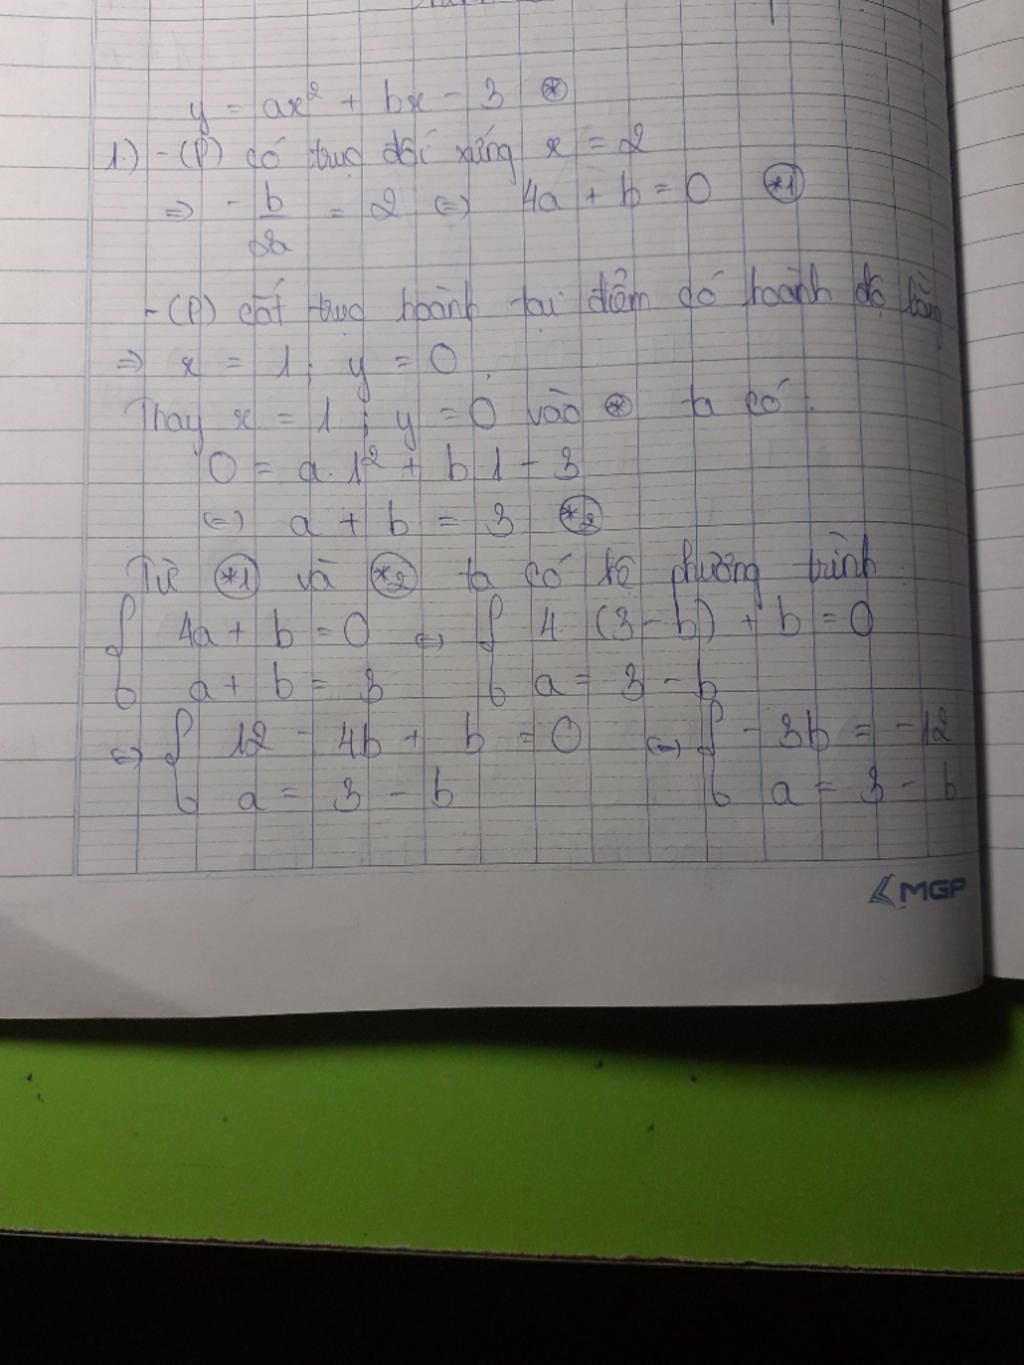 y = ax² + bx - 3 (*)
1.) - (P) có trục đối xứng x = 2
⇒ - b/2a = 2 ⇔ 4a + b = 0 (*1)
- (P) cắt trục hoành tại điểm có hoành độ bằng
⇒ x = 1 ; y = 0
Thay x = 1 ; y = 0 vào (*) ta có
0 = a.1² + b 1 - 3
⇔ a + b = 3 (*2)
Từ (*1) và (*2) ta có hệ phương trình
{ 4a + b = 0 ⇔ { 4. (3 - b) + b = 0
a + b = 3 a = 3 - b
⇔ { 12 - 4b + b = 0 ⇔ { - 3b = -12
a = 3 - b a = 3 - b
MGP